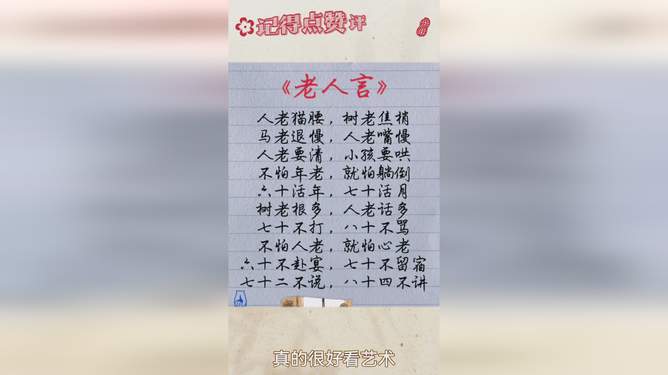 记得点赞评
《老人言》
人老猫腰，树老焦梢
马老退慢，人老嘴慢
人老要清，小孩要哄
不怕年老，就怕躺倒
六十活年，七十活月
树老根多，人老话多
七十不打，八十不骂
不怕人老，就怕心老
六十不赴宴，七十不留宿
七十二不说，八十四不讲
真的很好看艺术